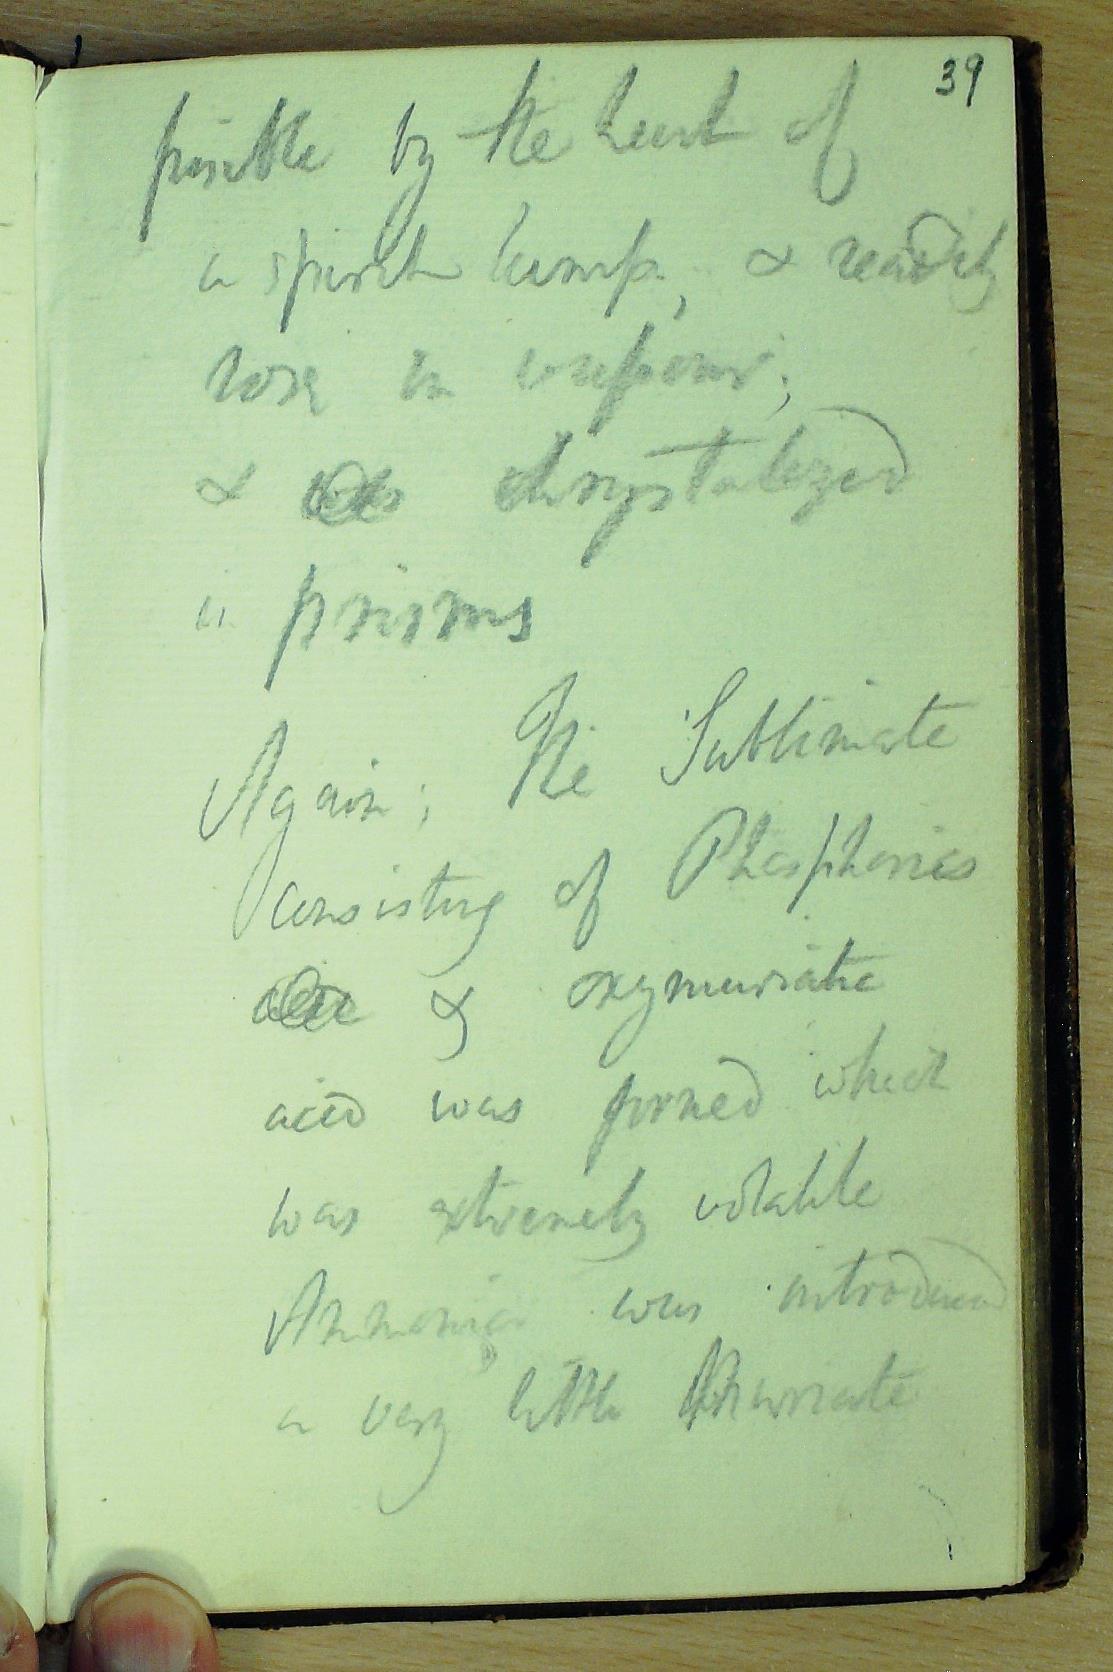 39
fusible by the heat of
a spirit lamp, & readily
rose in vapour;
& chrystalized
in prisms
Again; the Sublimate
consisting of Phosphorus
& oxymuriatic
acid was formed which
was extremely volatile
Ammonia was introduced
a very little Muriate